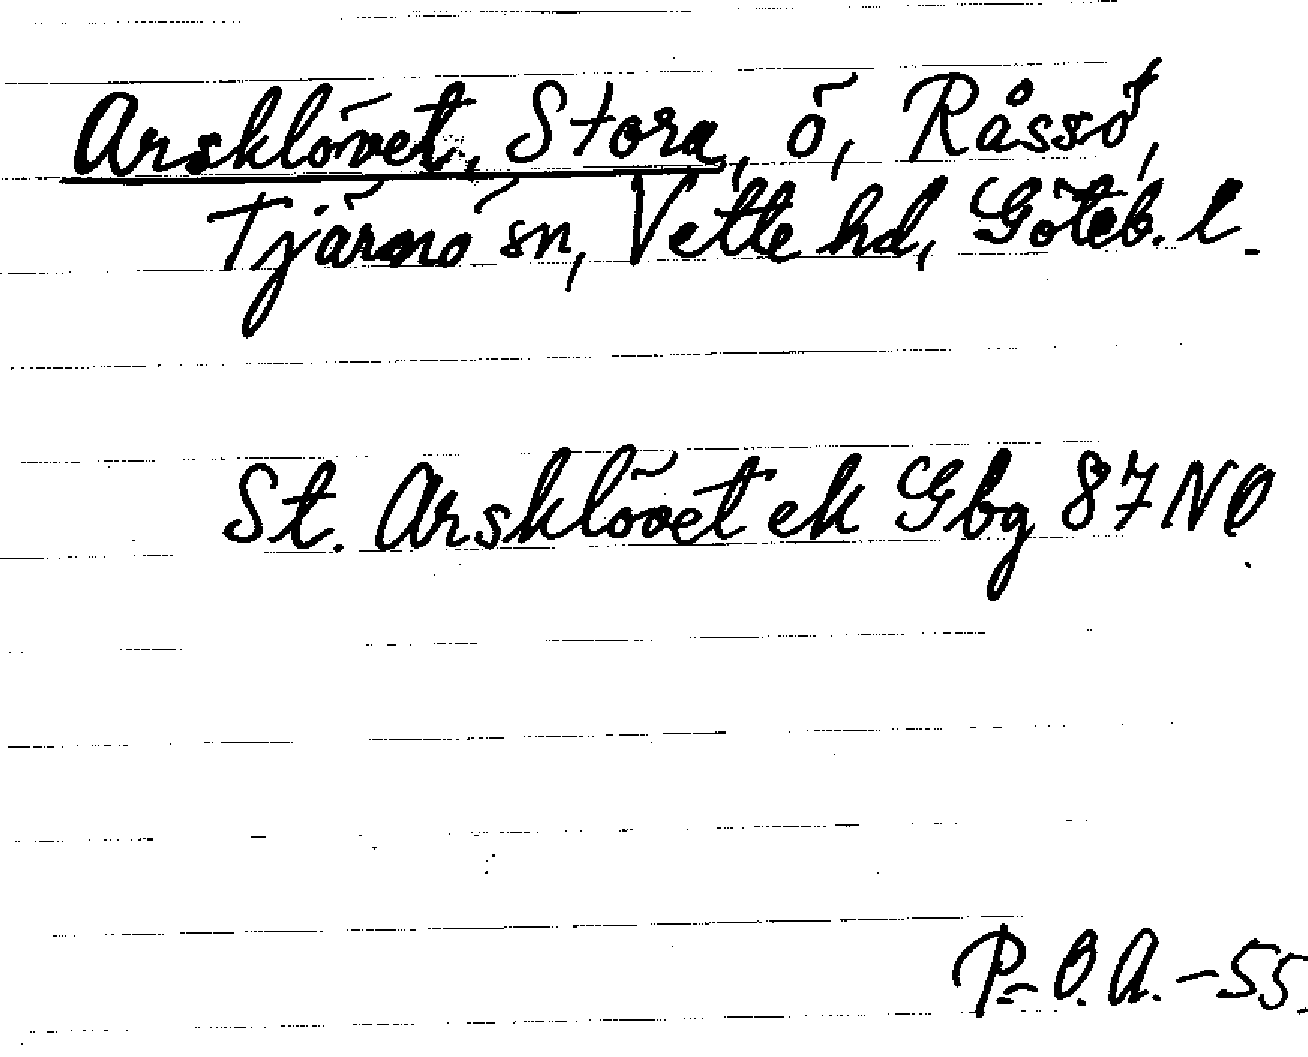 Arsklövet, Stora, ö, Råssö,
Tjärnö sn, Vette hd, Göteb. l.
St. Arsklövet ek Gbg 87 NO
P-O.A. -55.